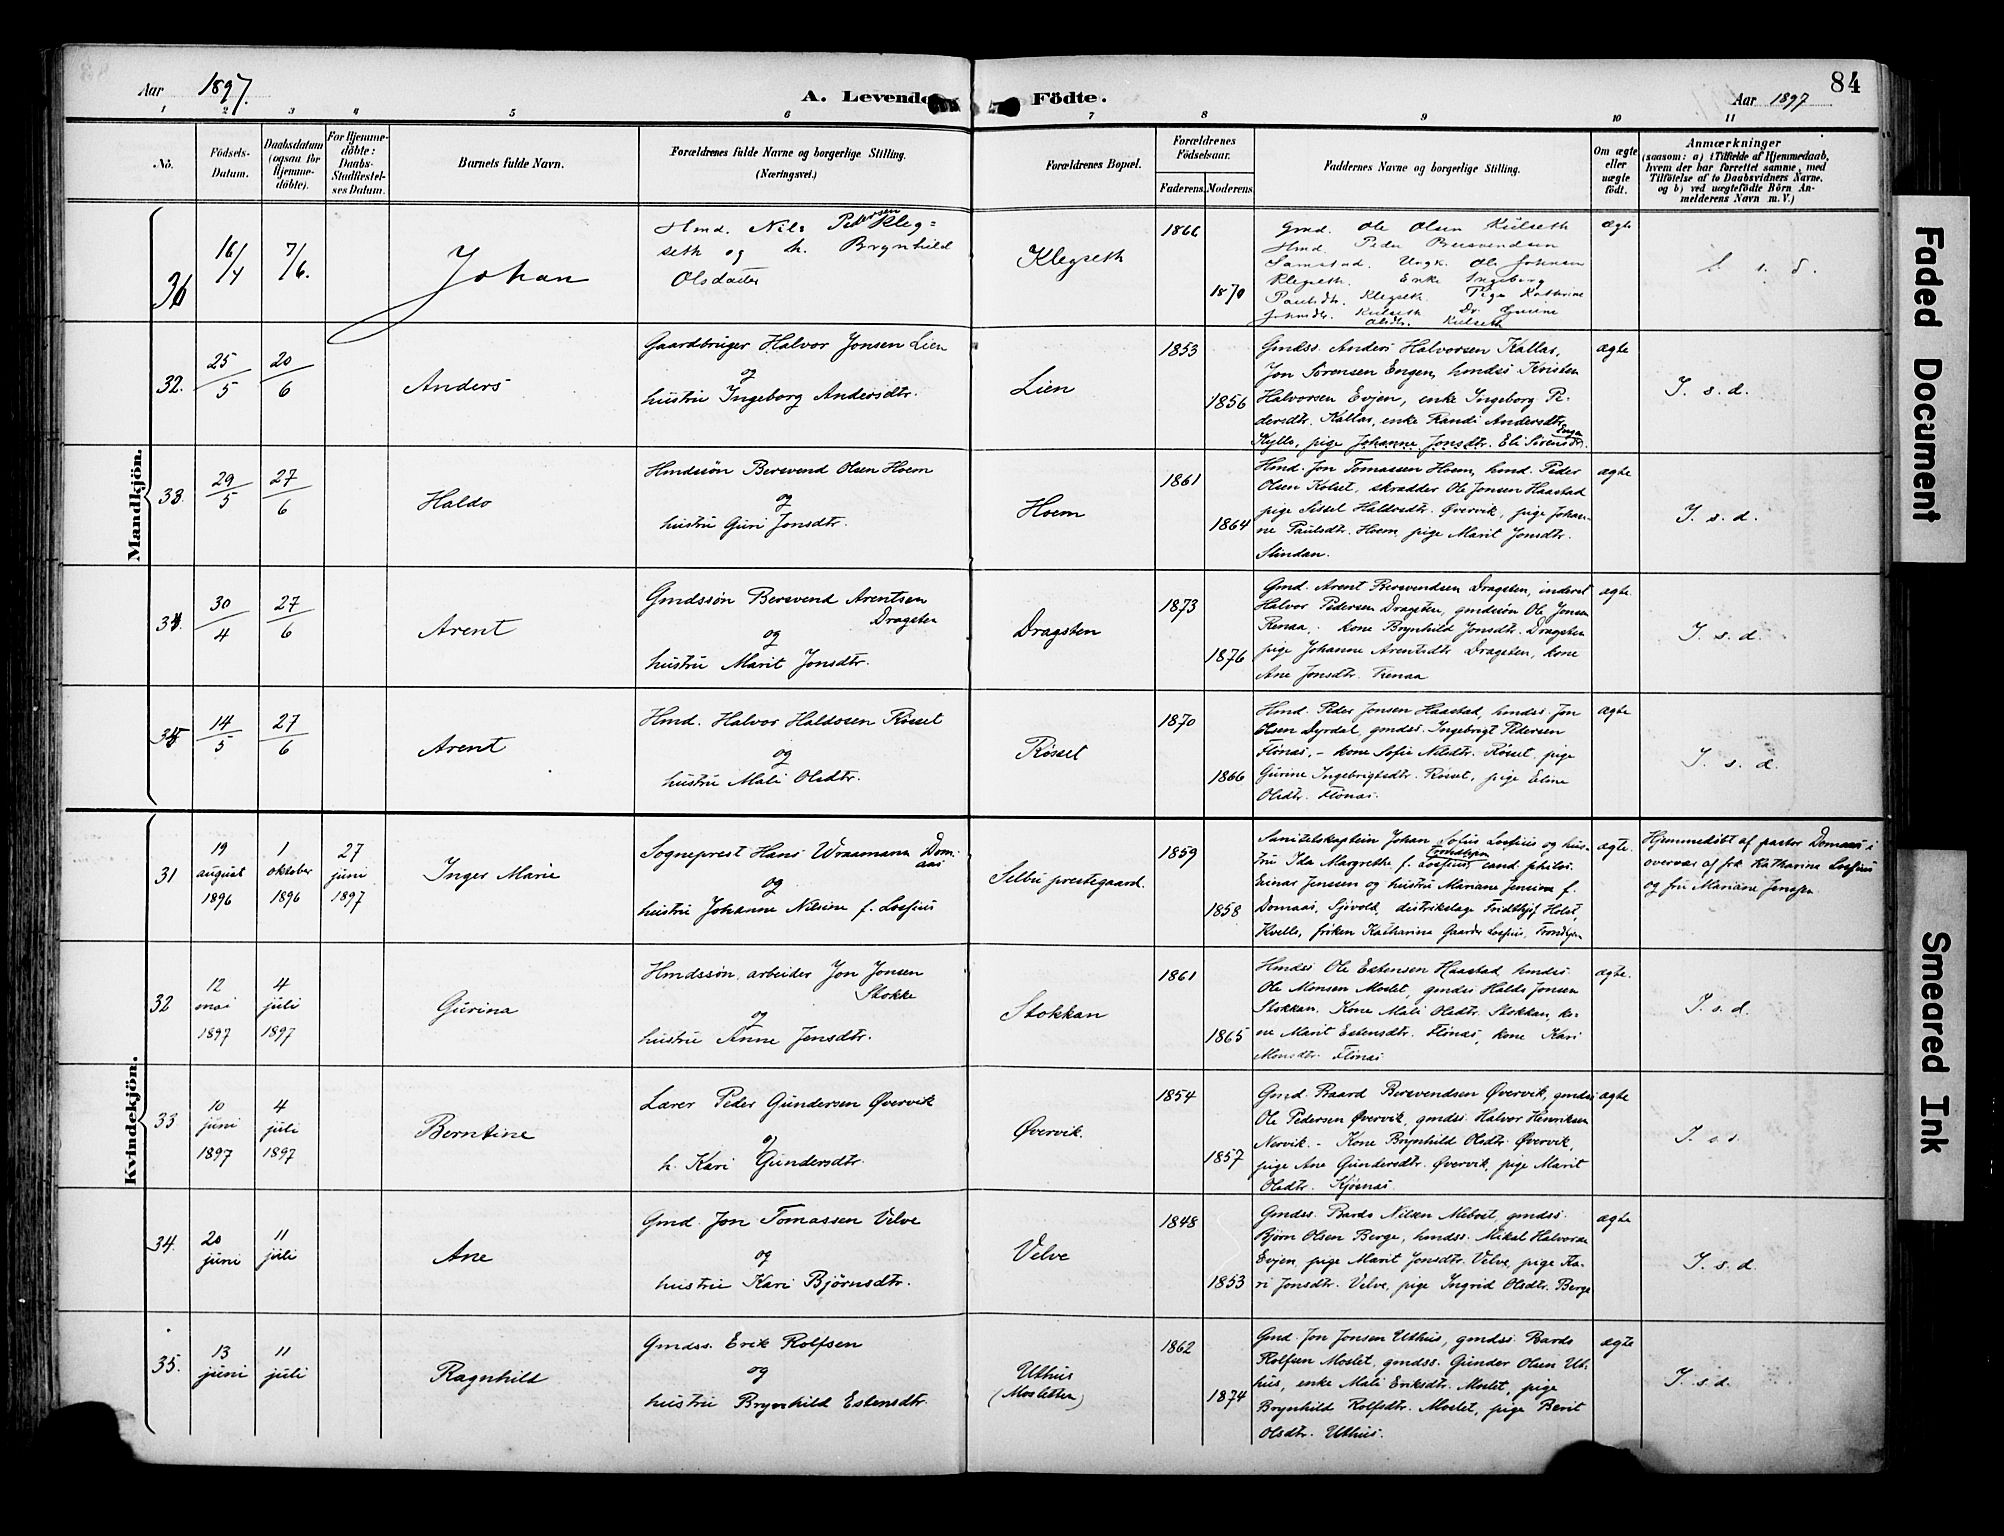 84
Aar 1897.
A. Levende Födte.
Aar 1897
1 2 3 4 5 6 7 8 9 10 11
No.
Födsels-
Datum.
Daabsdatum
(ogsaa for
Hjemme-
döbte).
For Hjemme-
döbte:
Daabs-
Stadfæstel-
ses Datum.
Barnets fulde Navn.
Forældrenes fulde Navne og borgerlige Stilling.
(Næringsvei.)
Forældrenes Bopæl.
Forældrenes
Födselsaar.
Faderens. Moderens
Faddernes Navne og borgerlige Stilling.
Om ægte
eller
uægte
födt.
Anmærkninger
(saasom: a) i Tilfælde af Hjemmedaab,
hvem der har forrettet samme, med
Tilföielse af to Daabsvidners Navne,
og b) ved uægtefödte Börn An-
melderens Navn m. V.)
Mandkjön.
16/4
7/6.
Johan
Hmd. Nils Pedersen Kleg-
seth og h. Brynhild
Olsdatter
Klegseth
1866
1870
Gmd. Ole Olsen Kulseth
Hmd Peder Bersvendsen
Samstad. Ungk. Ole Johnsen
Klegseth. Enke Ingeborg
Paulsdtr. Klegseth. Pige Kathrine
Johnsdtr. Kulseth Do
Olsdtr. Kulseth
ægte
I. s. d.
32.
25/5
20/6
Anders
Gaardbruger Halvor Jonsen Lien
og
hustru Ingeborg Andersdtr.
Lien
1853
1856
Gmdss. Anders Halvorsen Kallar,
Jon Sørensen Engen, hmdss Kristen
Halvorsen Evjen, enke Ingeborg Pe-
dersdtr. Kallar, enke Randi Andersdtr.
Kyllo, pige Johanne Jonsdtr. Eli Sørensdtr.
ægte
I. s. d.
33.
29/5
27/6
Haldo
Hmdssøn Bersvend Olsen Hoem
og
hustru Guri Jonsdtr.
Hoem
1861
1864
Hmd. Jon Tomassen Hoem, hmd. Peder
Olsen Kolset, skrædder Ole Jonsen Haastad
pige Sissel Hallvdtr. Øvervik, pige Johan-
ne Paulsdtr. Hoem, pige Marit Jonsdtr.
Slindan.
ægte
I. s. d.
34.
30/4
27/6
Arent
Gmdssøn Bersvend Arentsen
Dragsten
og
hustru Marit Jonsdtr.
Dragsten
1873
1876
Gmd. Arent Bersvendsen Dragsten, inderst
Halvor Pedersen Dragsten, gmdssøn Ole Jonsen
Renaa, kone Brynhild Jonsdtr. Dragsten
pige Johanne Arentsdtr. Dragsten, kone
Ane Jonsdtr. Renaa
ægte.
I. s. d.
35
14/5
27/6
Arent
Hmd. Halvor Haldosen Røsset
og
hustru Mali Olsdtr.
Røsset
1870
1866
Hmd. Peder Jonsen Haastad, hmdss. Jon
Olsen Dyrdal, gmdss. Ingebrigt Pedersen
Flønas, - kone Sofie Nilsdtr. Røsset, pige
Gurine Ingebrigtsdtr. Røsset, pige Eline
Olsdtr. Flønas.
ægte
I. s. d.
Kvindekjön.
31
19
august
1896
1
oktober
1896
27
juni
1897
Inger Marie
Sogneprest Hans Wraamann Dom-
aas
og
hustru Johanne Nilsine f. Lossius
Selbu prestegaard.
1859
1858
Sanitetskaptein Johan Sofus Lossius og hus-
tru Ida Margrethe f. Lossius, Trondhjem cand. philos.
Einar Jenssen og hustru Mariane Jensine f.
Domaas, distriktslæge Fridthjof Holst,
Kvelle, frøken Katharina Gaarder Lossius, Trondhjem
ægte.
Hjemmedøbt af pastor Domaas i
overvær af frk. Katharine Lossius
og fru Mariane Jenssen
32
12
mai
1897
4
juli
1897
Gurina
Hmdssøn, arbeider Jon Jonsen
Stokke
og
hustru Anne Jensdtr.
Stokkan
1861
1865
Hmdss Ole Estensen Haastad, hmdss.
Ole Monsen Moslet, gmdss Haldo Jonsen
Stokkan. Kone Mali Olsdtr. Stokkan, ko-
ne Marit Estensdtr. Flønas, kone Kari
Monsdtr. Flønas
ægte.
I. s. d.
33
10
juni
1897
4
juli
1897
Berntine
Lærer Peder Gundersen Øvervik
og
h. Kari Gundersdtr.
Øvervik.
1854
1857
Gmd. Baard Bersvendsen Øvervik, gmdss
Ole Pedersen Øvervik, gmdss. Halvor Henriksen
Nervik. - Kone Brynhild Olsdtr. Øvervik,
pige Ane Gundersdtr. Øvervik, pige Marit
Olsdtr. Kjøsnas.
ægte
I. s. d.
34.
20
juni
11
juli
Ane
Gmd. Jon Tomassen Velve
og
hustru Kari Bjørnsdtr.
Velve
1848
1853
Gmdss. Bardo Nilsen Mebost, gmdss.
Bjørn Olsen Berge, hmdss. Mikal Halvorsen
Evjen, pige Marit Jonsdtr. Velve, pige Ka-
ri Jonsdtr. Velve, pige Ingrid Olsdtr. Berge
ægte
I. s. d.
35.
13
juni
11
juli
Ragnhild
Gmdss. Erik Rolfsen
og
hustru Brynhild Estensdtr.
Uthus
(Mosletten)
1862
1874
Gmd. Jon Jonsen Uthus, gmdss. Bardo
Rolfsen Moslet, gmdss. Gunder Olsen Ut-
hus, enke Mali Eriksdtr. Moslet, pige
Brynhild Rolfsdtr. Moslet, pige Berit
Olsdtr. Uthus.
ægte
I. s. d.
Faded Document
Smeared Ink